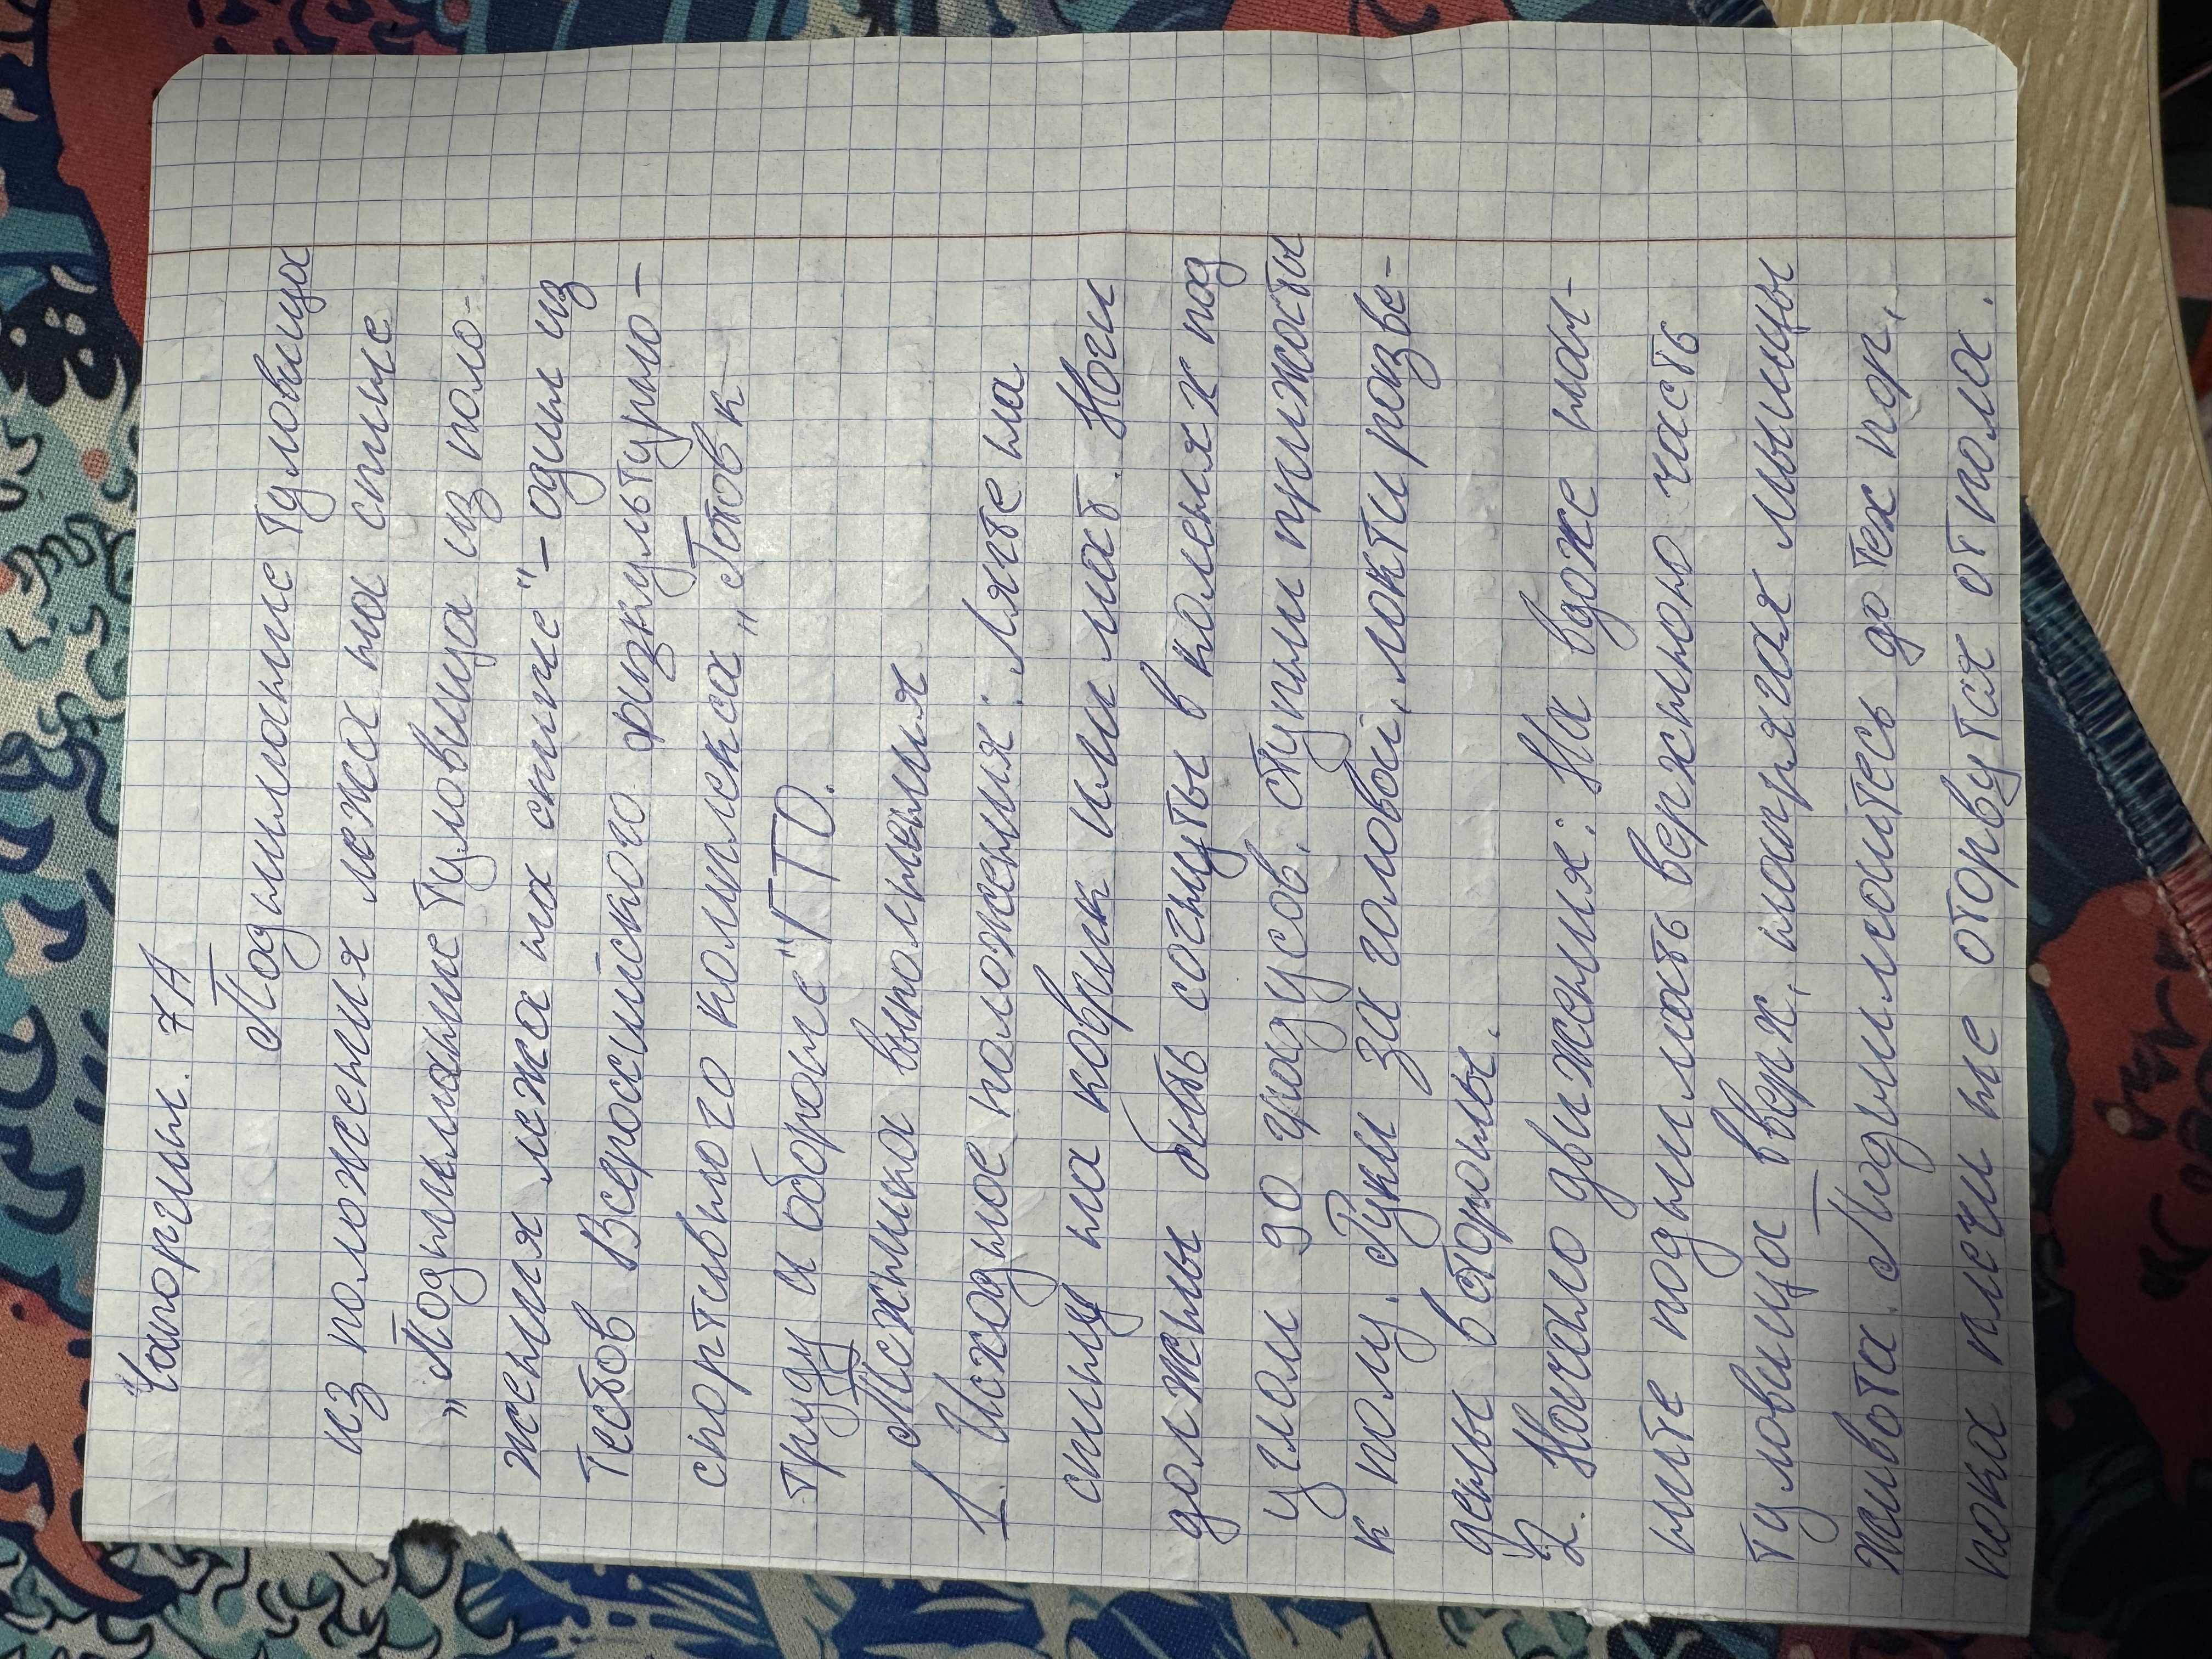 Чапоргин. 7А
Поднимание туловища
из положения лежа на спине
„Поднимание туловища из поло-
жения лежа на спине"- один из
тестов Всероссийского физкультурно-
спортивного комплекса „Готов к
труду и обороне" ГТО.
Техника выполнения
1. Исходное положения: Лягте на
спину на коврик или мат. Ноги
должны быть согнуты в коленях под
углом 90 градусов, ступни прижаты
к полу. Руки за головой, локти разве-
дены в стороны.
2. Начало движения: На вдохе нач-
ните поднимать верхнюю часть
туловища вверх, напрягая мышцы
живота. Поднимайтесь до тех пор,
пока плечи не оторвутся от пола.